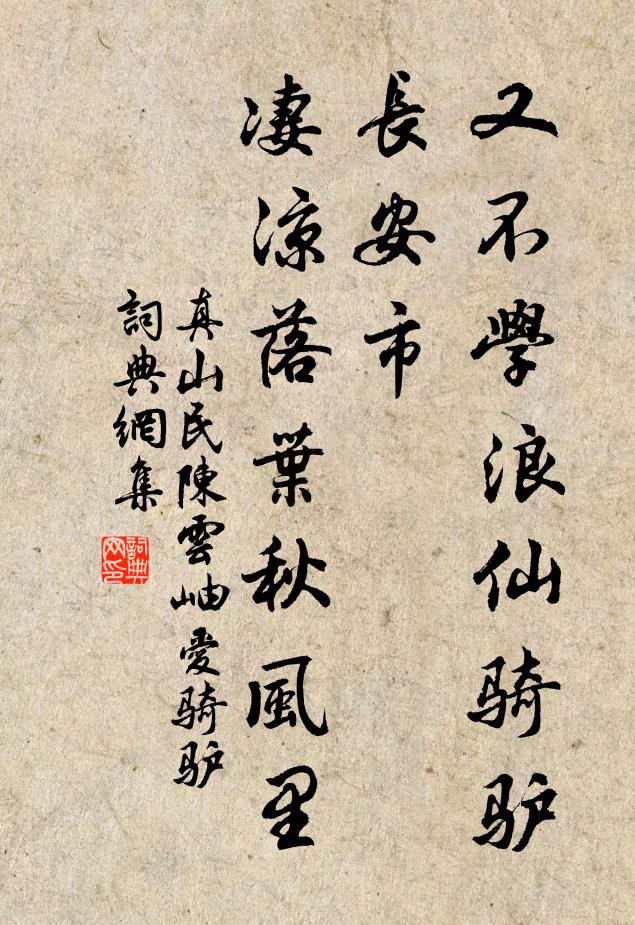 又不學浪仙骑驴
長安市
凄涼落葉秋風里
真山民陳雲岫愛骑驴
詞典網集
詞典网印